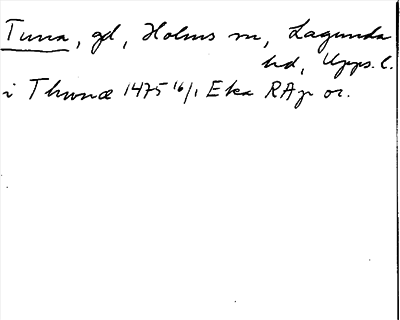 Tuna, gd, Holms sn, Lagunda
hd, Upps. l.
i Thunæ 1475 16/1 Eka RAp or.